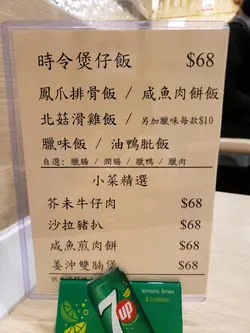 時令煲仔飯 $68
鳳爪排骨飯 / 咸魚肉餅飯
北菇滑雞飯 / 另加臘味每款$10
臘味飯 / 油鴨肶飯
自選: 臘腸 / 潤腸 / 臘鴨 / 臘肉
小菜精選
芥末牛仔肉 $68
沙拉豬扒 $68
咸魚煎肉餅 $68
姜沖雙腩煲 $68
7UP
lemons, limes
& bubbles